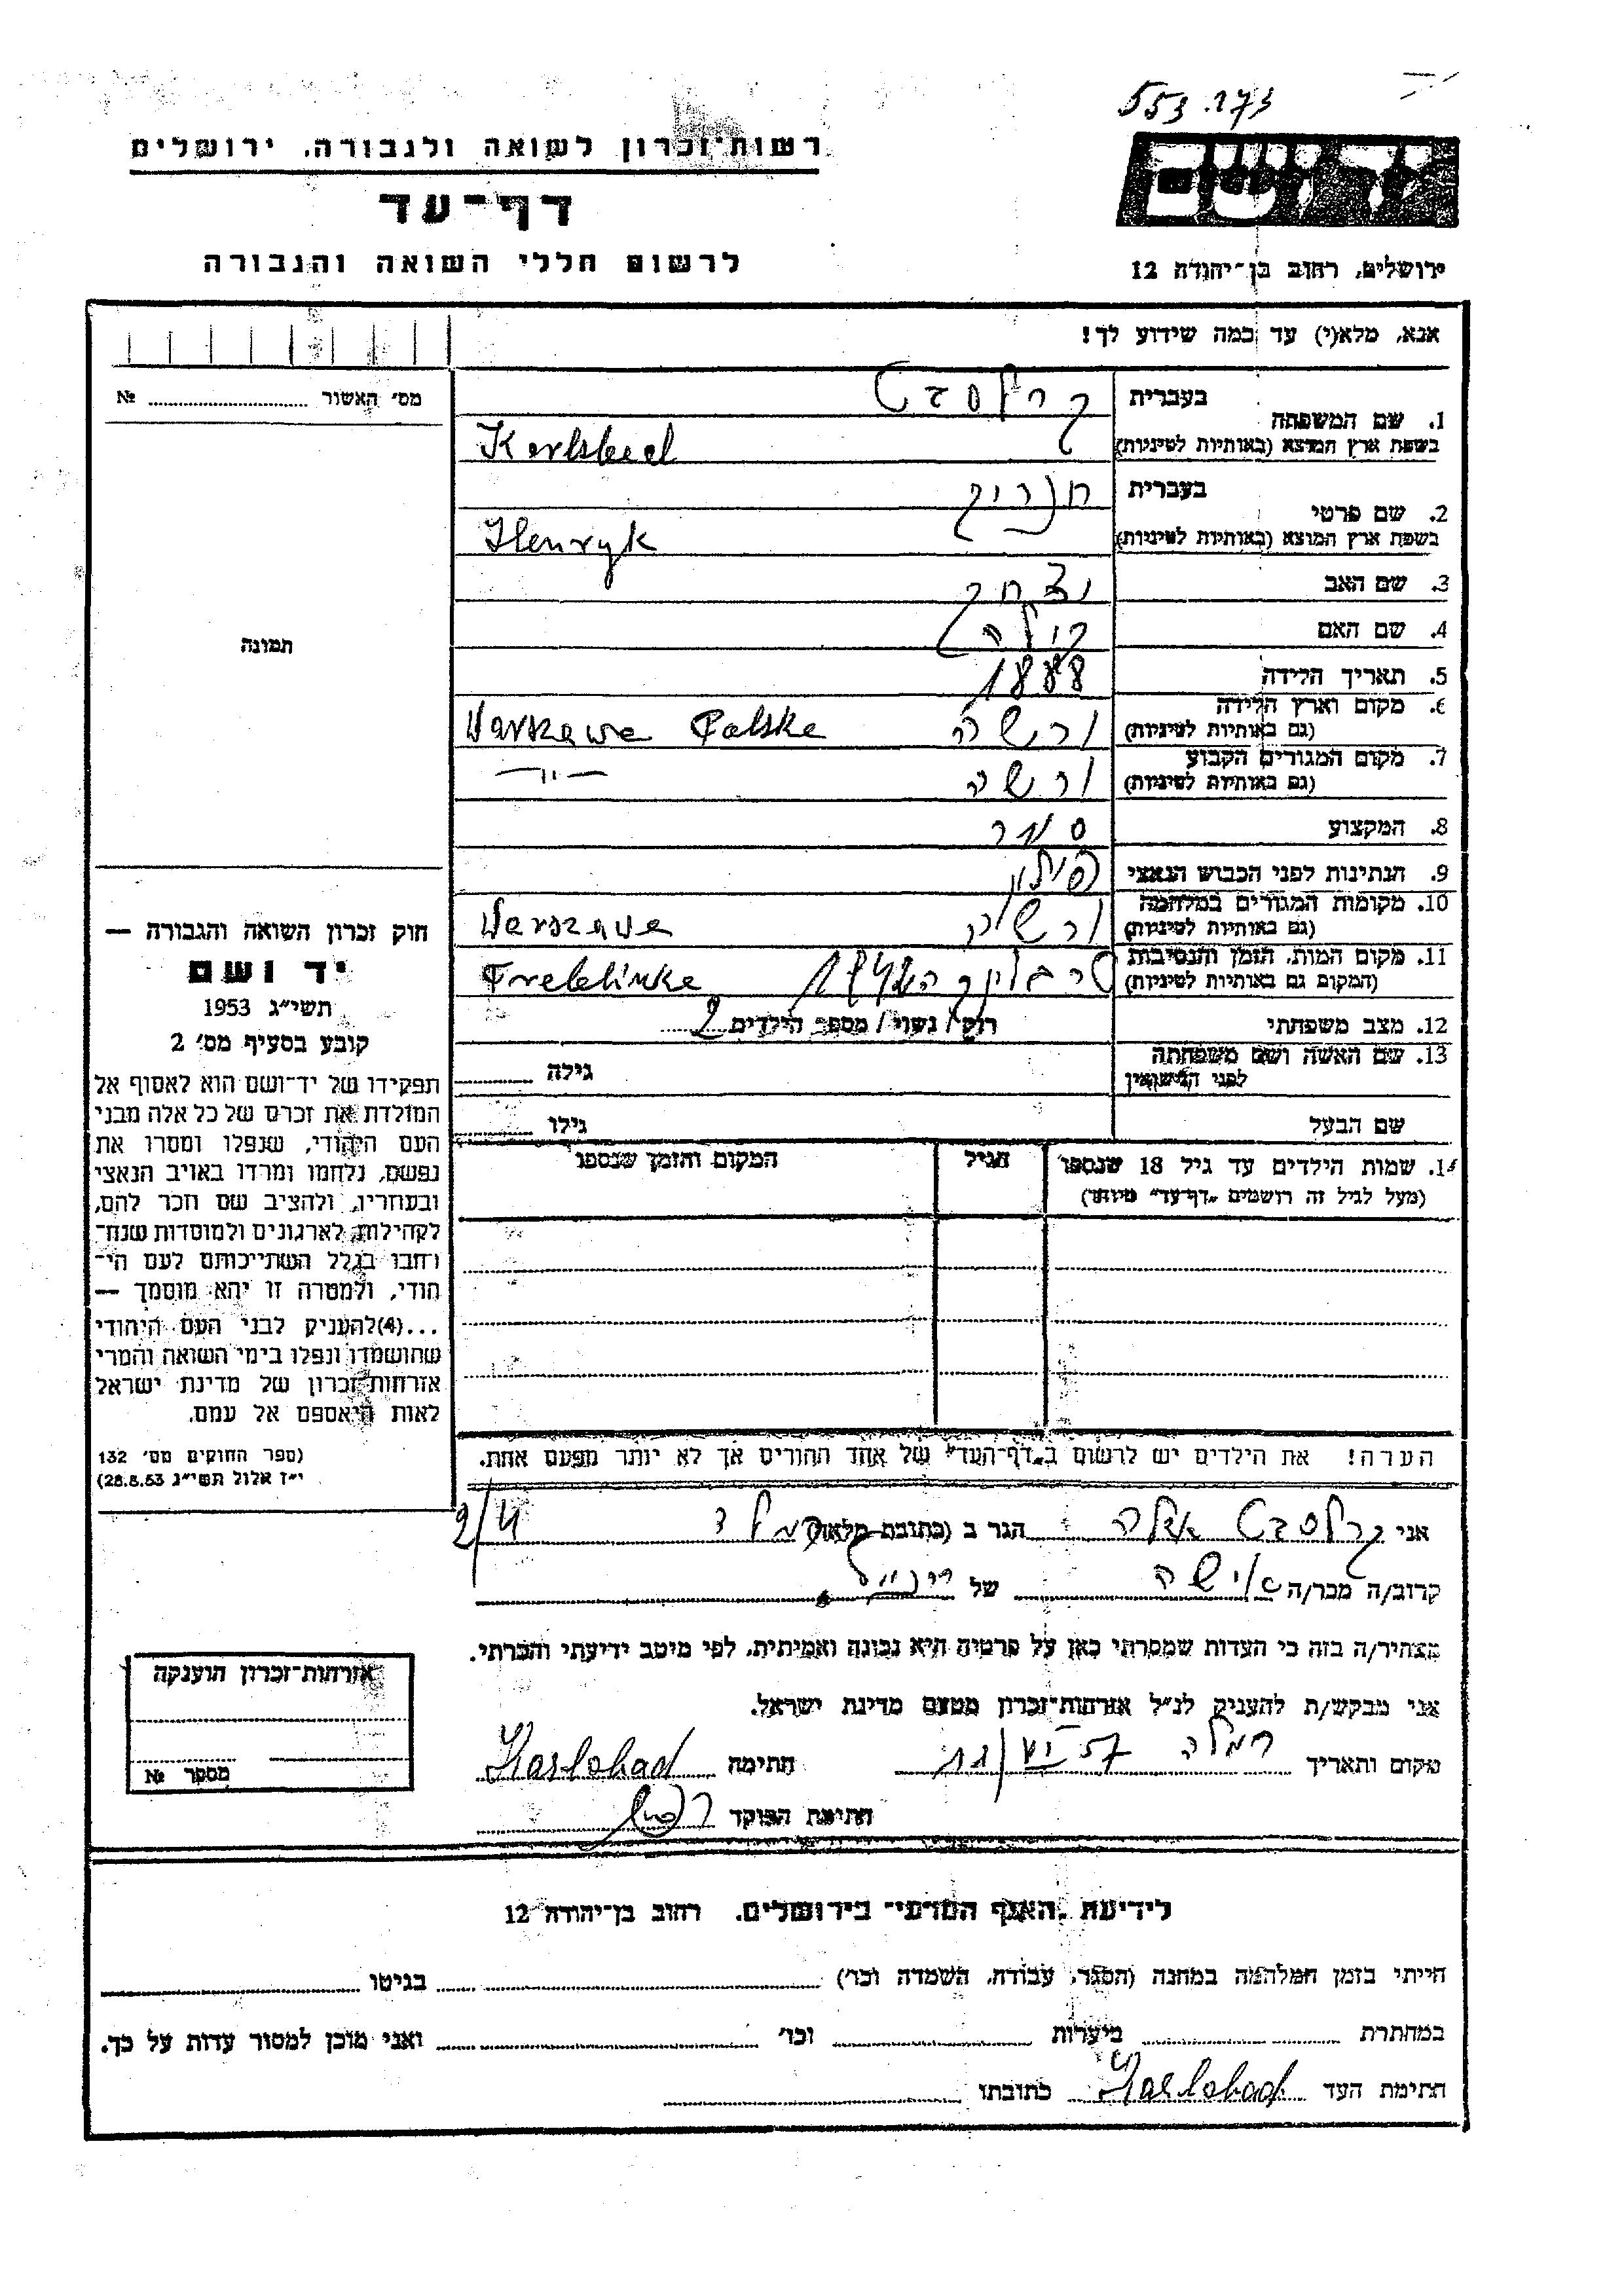 553.173
רשות־זכרון לשואה ולגבורה, ירושלים
דף־עד
לרשום חללי השואה והגבורה
יד ושם
ירושלים, רחוב בן־יהודה 12
אנא, מלא(י) עד כמה שידוע לך!
מס׳ האשור № 
תמונה
חוק זכרון השואה והגבורה —
יד ושם
תשי״ג 1953
קובע בסעיף מס׳ 2
תפקידו של יד־ושם הוא לאסוף אל
המולדת את זכרם של כל אלה מבני
העם היהודי, שנפלו ומסרו את
נפשם, נלחמו ומרדו באויב הנאצי
ובעוזריו, ולהציב שם וזכר להם,
לקהילות, לארגונים ולמוסדות שנח־
רבו בגלל השתייכותם לעם הי־
הודי, ולמטרה זו יהא מוסמך —
...(4) להעניק לבני העם היהודי
שהושמדו ונפלו בימי השואה והמרי
אזרחות־זכרון של מדינת ישראל
לאות היאספם אל עמם.
(ספר החוקים מס׳ 132
י״ז אלול תשי״ג 28.8.53)
1. שם המשפחה בעברית קרלסבט
בשפת ארץ המוצא (באותיות לטיניות) Karlsbad
2. שם פרטי בעברית הנריק
בשפת ארץ המוצא (באותיות לטיניות) Henryk
3. שם האב יצחק
4. שם האם
5. תאריך הלידה 1888
6. מקום וארץ הלידה (גם באותיות לטיניות) ורשה Warszawa Polska
7. מקום המגורים הקבוע (גם באותיות לטיניות) ורשה —״—
8. המקצוע סוחר
9. הנתינות לפני הכבוש הנאצי פולין
10. מקומות המגורים במלחמה (גם באותיות לטיניות) ורשה Warszawa
11. מקום המות, הזמן והנסיבות (המקום גם באותיות לטיניות) טרבלינקה Treblinka
12. מצב משפחתי רווק / נשוי / מספר הילדים 2
13. שם האשה ושם משפחתה לפני הנישואין גילה
שם הבעל גילו
14. שמות הילדים עד גיל 18 שנספו הגיל המקום והזמן שנספו
(מעל לגיל זה רושמים „דף־עד״ מיוחד)
הערה! את הילדים יש לרשום ב„דף־העד״ של אחד ההורים אך לא יותר מפעם אחת.
אני קרלסבט הגר ב (כתובת מלאה) 2/4
קרוב/ה מכר/ה אישה של
מצהיר/ה בזה כי העדות שמסרתי כאן על פרטיה היא נכונה ואמיתית, לפי מיטב ידיעתי והכרתי.
אני מבקש/ת להעניק לנ״ל אזרחות־זכרון מטעם מדינת ישראל.
מקום ותאריך רמלה חתימה Karlsbad
חתימת הפוקד
אזרחות־זכרון הוענקה
מספר №
לידיעת „האגף המדעי״ בירושלים, רחוב בן־יהודה 12
הייתי בזמן המלחמה במחנה (הסגר, עבודה, השמדה וכו׳) בגיטו
במחתרת ביערות וכו׳ ואני מוכן למסור עדות על כך.
חתימת העד Karlsbad כתובתו